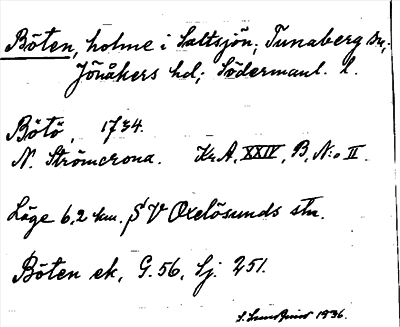 Böten, holme i Saltsjön, Tunaberg sn,
Jönåkers hd; Södermanl. l.
Bötö, 1734.
N. Strömcrona. Kr.A, XXIV, B, N:o II.
Läge 6,2 km. SV Oxelösunds stn.
Böten ek, G.56, Sj. 251.
1936.